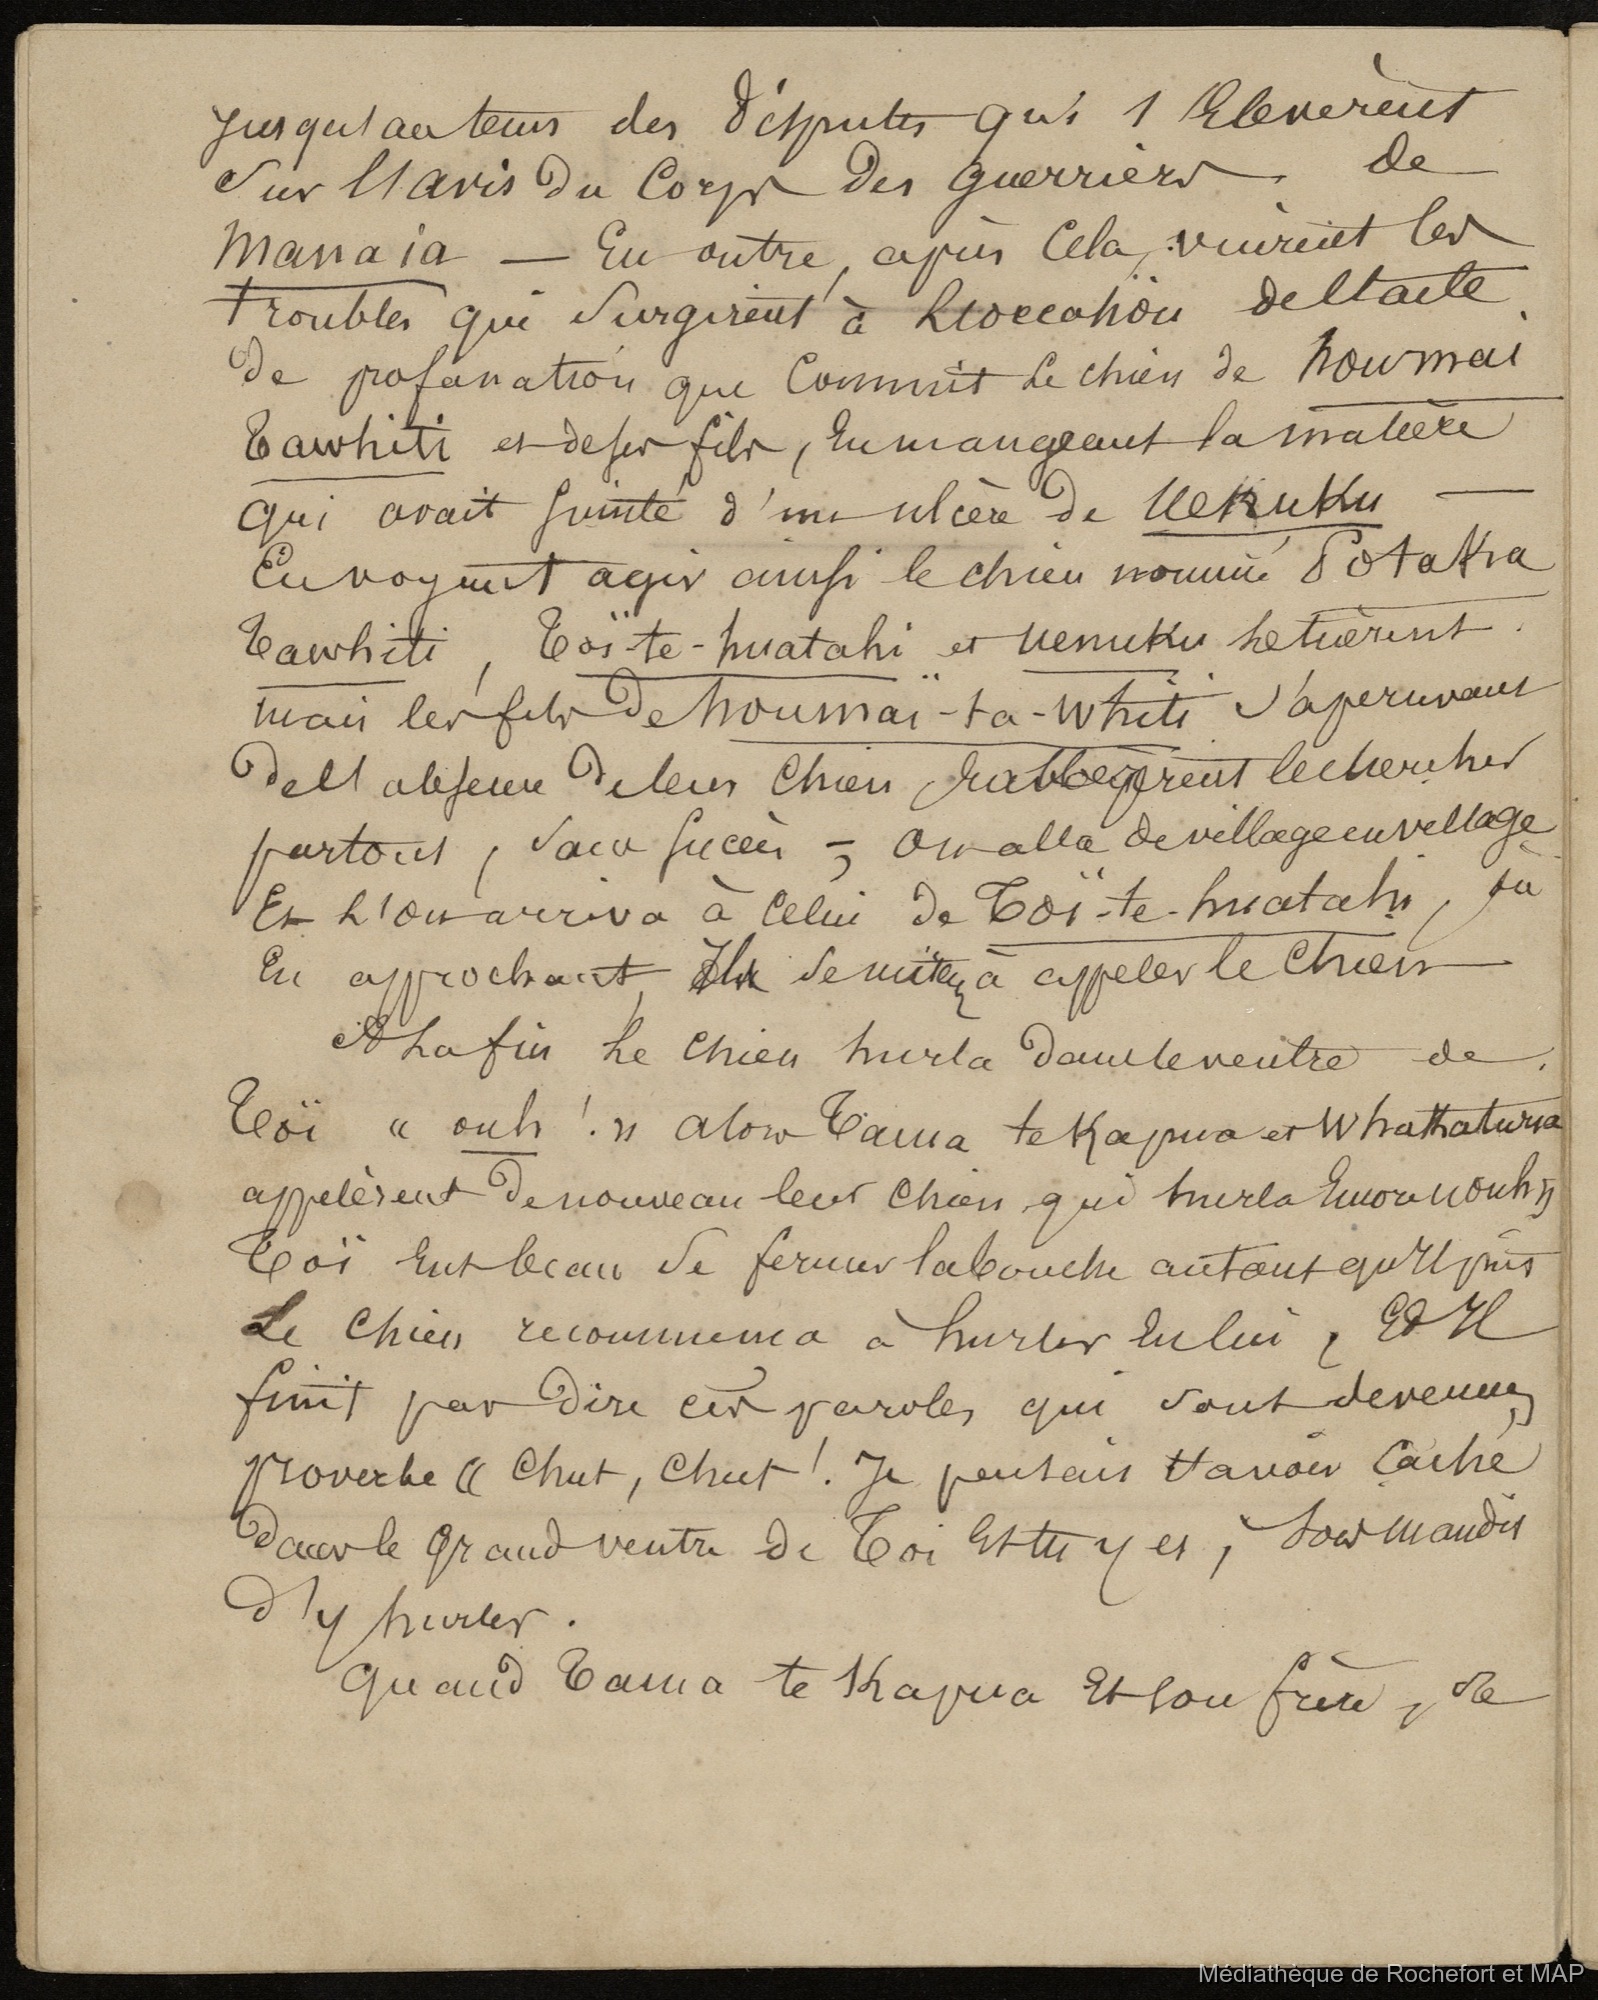 jusqu'au tems des disputes qui s'élevèrent
sur l'avis du Corps des guerriers de
Manaia — En outre, après cela, vinrent les
troubles qui surgirent à l'occasion de l'acte
de profanation que commit le chien de houmai
Tawhiti et de ses fils, en mangeant la matière
qui avait suinté d'un ulcère de Uenuku —
En voyant agir ainsi le chien nommé Potaka
Tawhiti, Toï-te-huatahi et Uenuku le tuèrent.
mais les fils de houmaï-ta-whiti s'apercevant
de l'absence de leur chien, le chercher
partout, sans succès —, On alla de village en village
Et l'on arriva à celui de Toï-te-huatahi, où
En approchant, Ils se mirent à appeler le chien
A la fin le chien hurla dans le ventre de
Toï « ouh ! » alors Tama te Kapua et Whakaturia
appelèrent de nouveau leur chien qui hurla encore « ouh »
Toï eut beau se fermer la bouche autant qu'Il put
Le chien recommença à hurler en lui, Et Il
finit par dire ces paroles qui sont devenues
proverbe « Chut, chut ! Je pensais t'avoir caché
dans le grand ventre de Toi Et tu y es, maudit
d'y hurler.
Quand Tama te Kapua Et son frère, se
Médiathèque de Rochefort et MAP